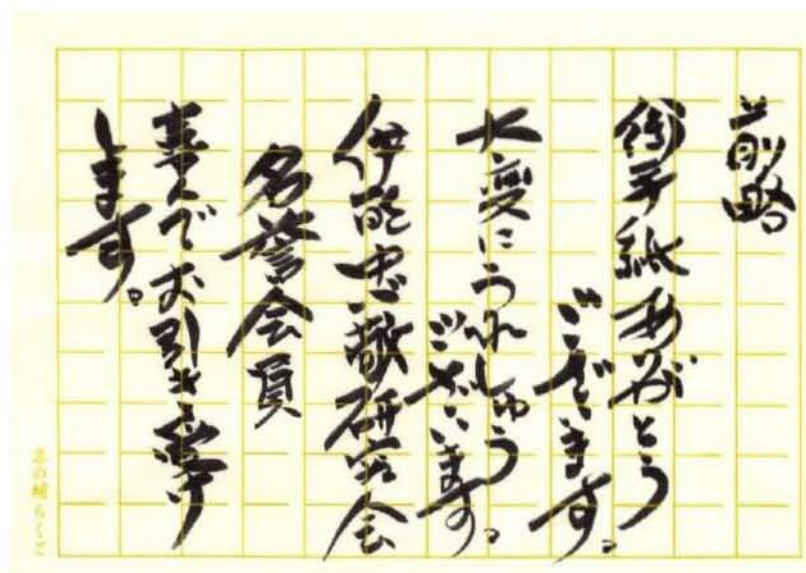 前略
御手紙ありがとう
ございます。
大変にうれしゅう
ございます。
伊能忠敬研究会
名誉会員
喜んでお引き受け
します。